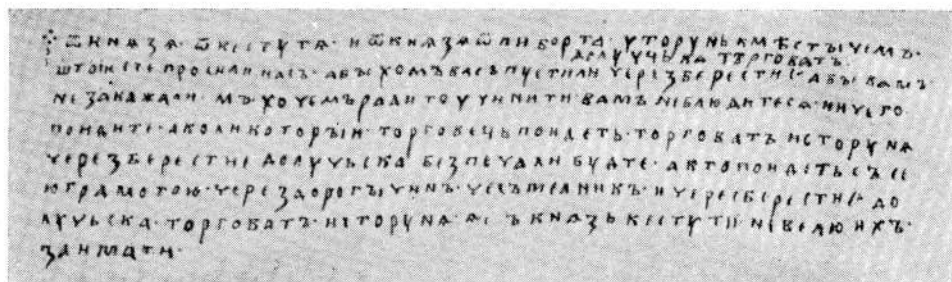 ѿ кнѧзѧ · ѿ кестутѧ · и ѿ кнѧзѧ ѿ либорта · у торунь к мѣстычемъ ·
до лучьска търговатъ ·
што есте просили насъ · абыхомъ васъ пустили черезъ берестие · абы вамъ
не заказали · мъ хочемъ ради то учинити вамъ не блюдитесѧ ничего
поидите · а коли которыи торговець поидеть · торговатъ ис торунѧ
черезъ берестие до лучьска без печали будте · а кто поидеть съ се
ю грамотою · через дорогычинъ · чересъ мелникъ · и черес берестие до
лучьска · торговатъ · ис торунѧ · азъ кнѧзь кестутии не велю ихъ ·
заимати ·